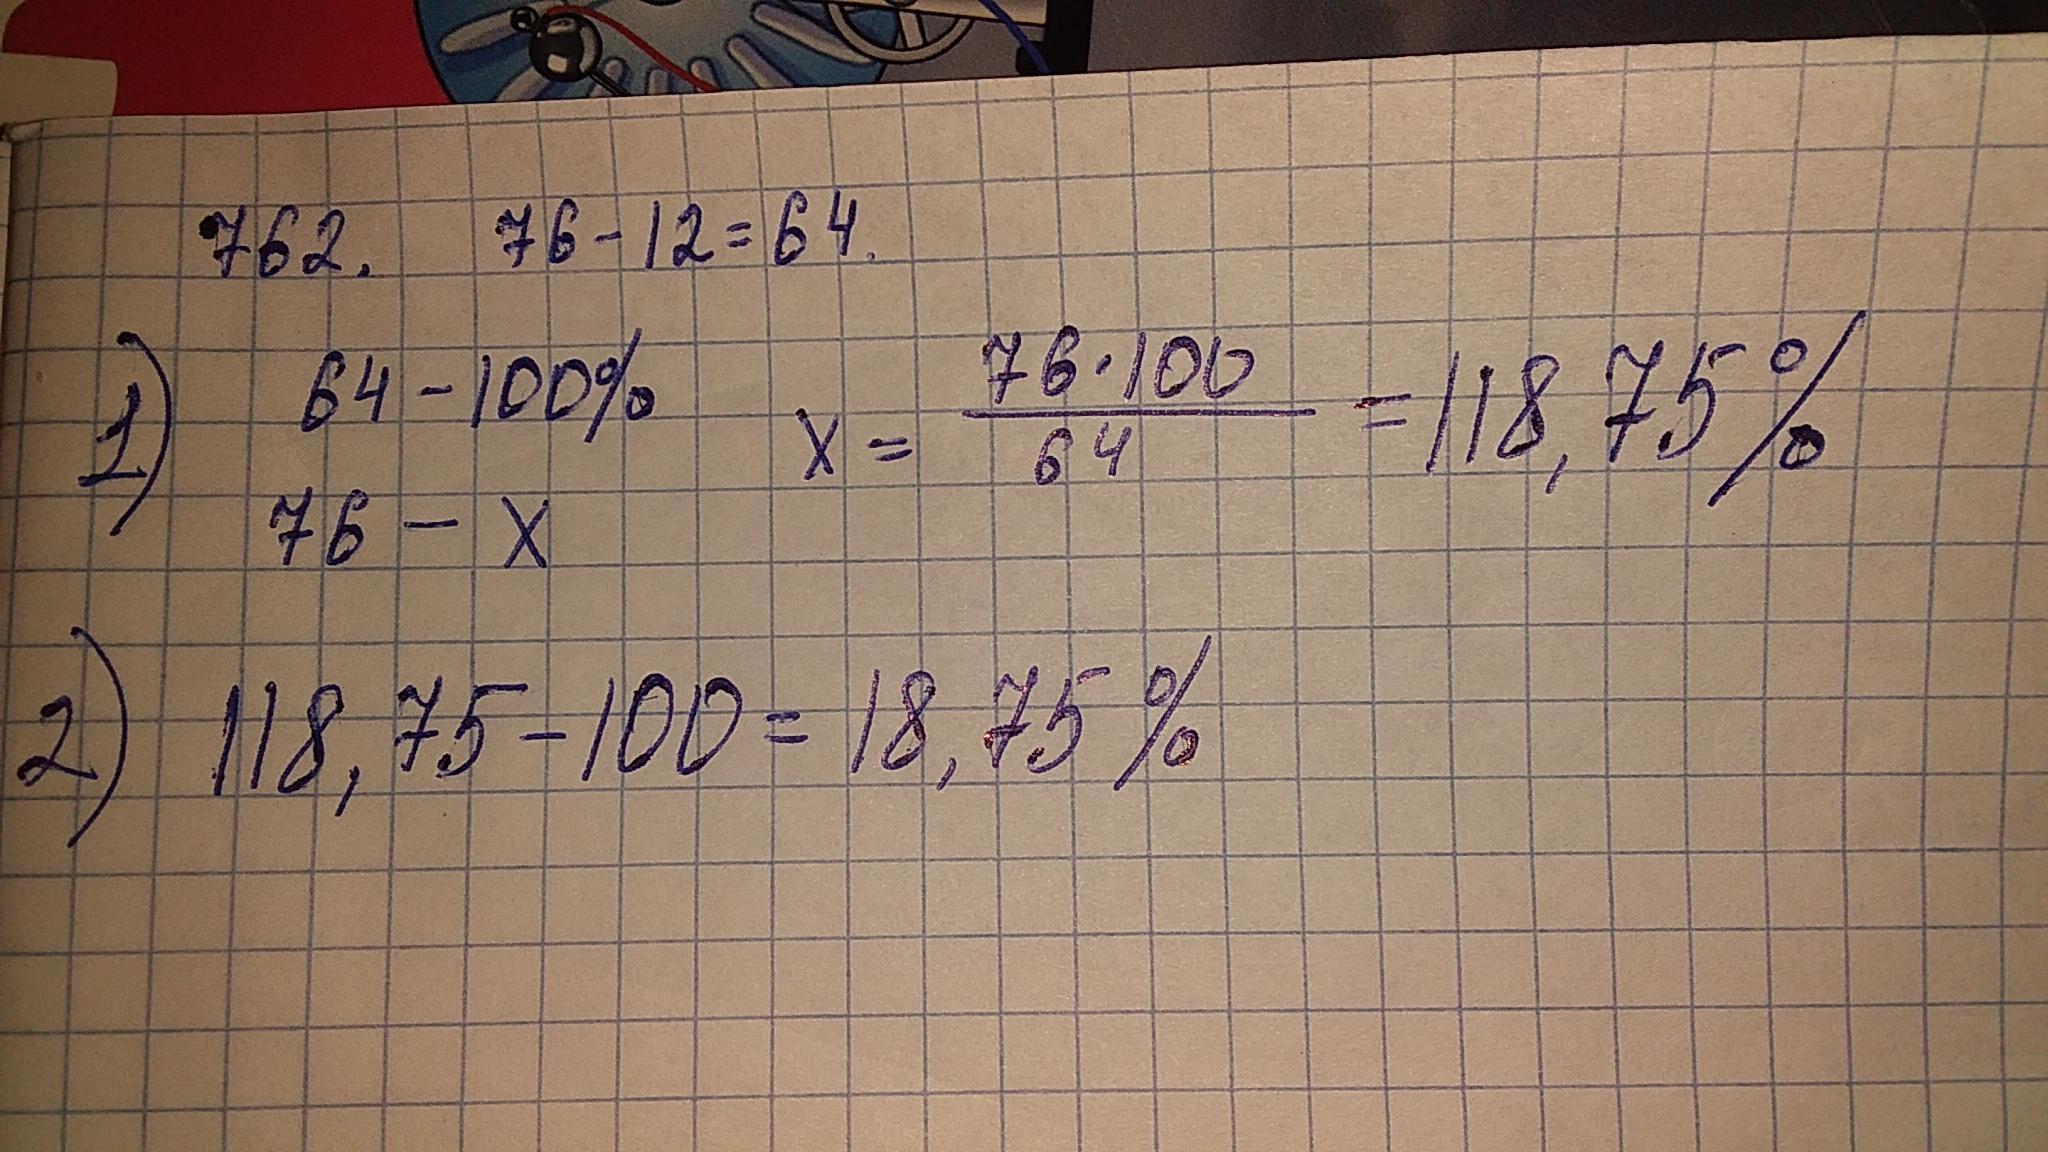 762. 76-12=64.
1) 64-100% x = 76·100/64 = 118,75%
76 - x
2) 118,75-100=18,75%